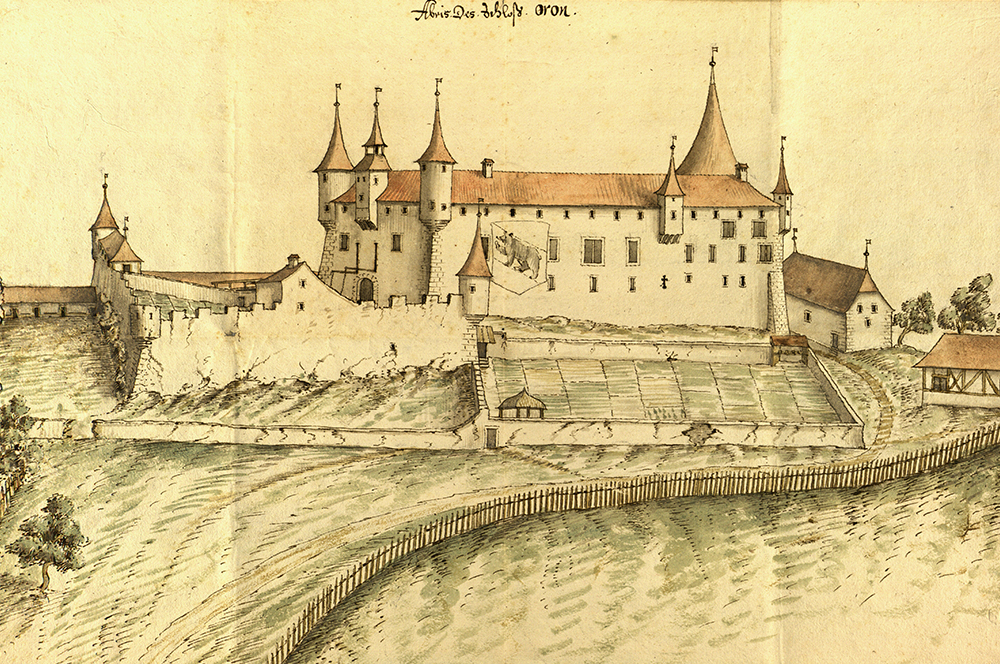 Abris Des Schloß oron.